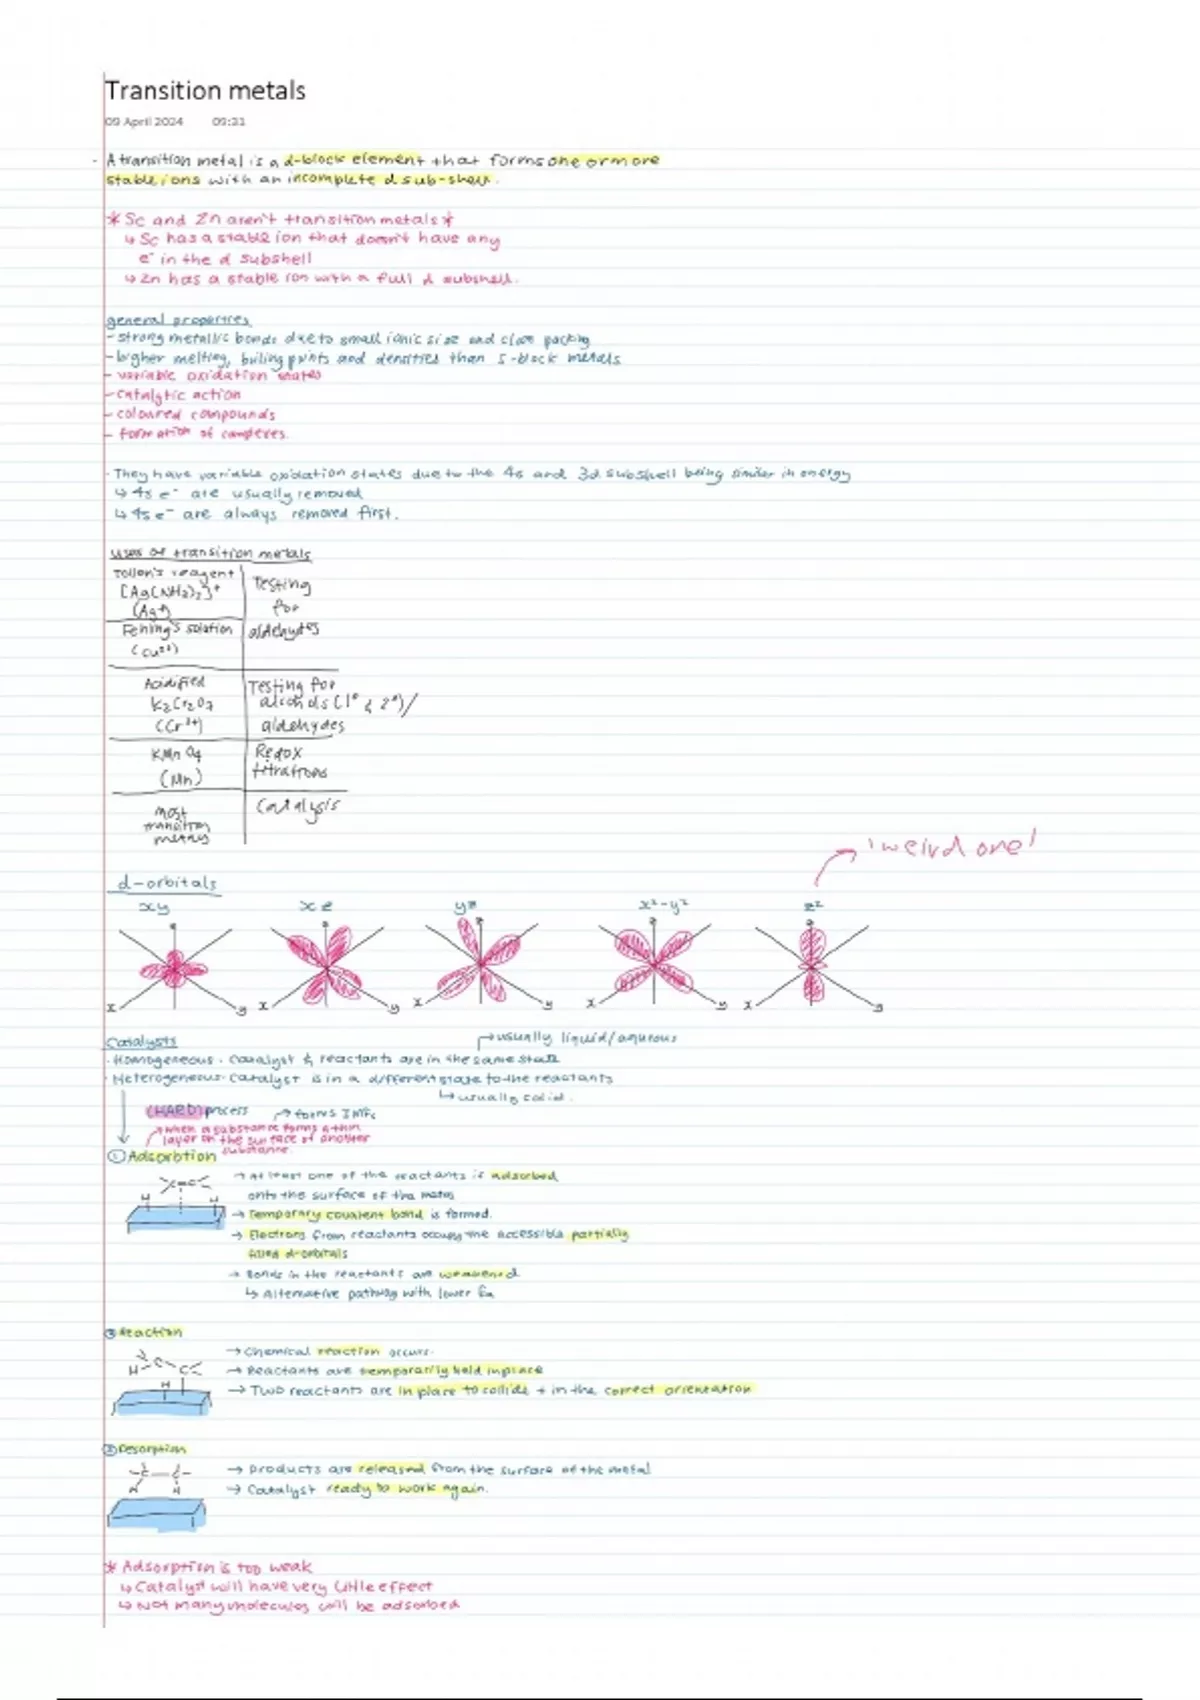 Transition metals
09 April 2024 09:31
- A transition metal is a d-block element that forms one or more
stable ions with an incomplete d sub-shell.
* Sc and Zn aren't transition metals *
↳ Sc has a stable ion that doesn't have any
e⁻ in the d subshell
↳ Zn has a stable ion with a full d subshell.
general properties
- strong metallic bonds due to small ionic size and close packing
- higher melting, boiling points and densities than s-block metals
- variable oxidation states
- catalytic action
- coloured compounds
- formation of complexes.
- They have variable oxidation states due to the 4s and 3d subshell being similar in energy
↳ 4s e⁻ are usually removed
↳ 4s e⁻ are always removed first.
uses of transition metals
Tollen's reagent
[Ag(NH₃)₂]⁺
(Ag⁺)
Testing
for
aldehydes
Fehling's solution
(Cu²⁺)
Acidified
K₂Cr₂O₇
(Cr³⁺)
Testing for
alcohols (1° & 2°)/
aldehydes
KMnO₄
(Mn)
Redox
titrations
most
transition
metals
Catalysis
'weird one'
d-orbitals
xy xz yz x²-y² z²
z z z
x y x y x y x y x y
Catalysts
→ usually liquid/aqueous
- Homogeneous - Catalyst & reactants are in the same state
- Heterogeneous - Catalyst is in a different state to the reactants
↳ usually solid.
(HARD) process
→ forms IMFs
→ when a substance forms a thin
layer on the surface of another
substance.
① Adsorbtion
→ At least one of the reactants is adsorbed
onto the surface of the metal
→ Temporary covalent bond is formed.
→ Electrons from reactants occupy the accessible partially
filled d-orbitals
→ Bonds in the reactants are weakened
↳ Alternative pathway with lower Ea
H C H
② Reaction
→ Chemical reaction occurs.
→ Reactants are temporarily held in place
→ Two reactants are in place to collide + in the correct orientation
H C C
H
③ Desorption
→ Products are released from the surface of the metal
→ Catalyst ready to work again.
C C
H H
* Adsorption is too weak
↳ Catalyst will have very little effect
↳ Not many molecules will be adsorbed